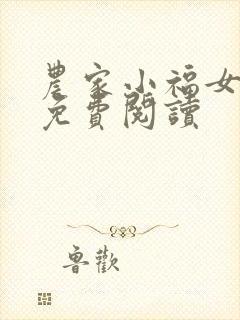 農家小福女
免費閱讀
魯歡